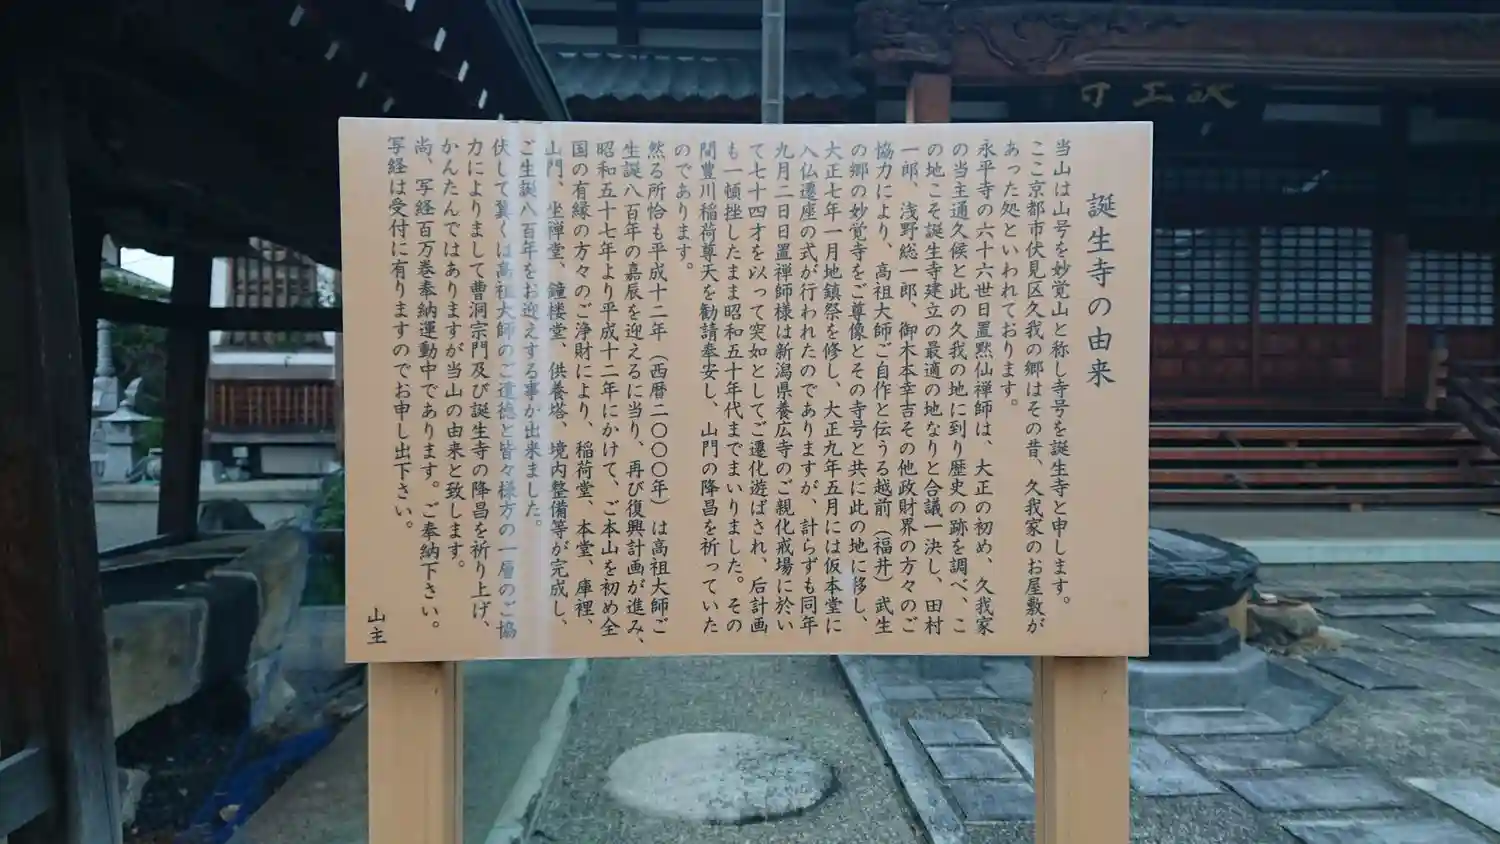 誕生寺
誕生寺の由来
当山は山号を妙覚山と称し寺号を誕生寺と申します。
ここ京都市伏見区久我の郷はその昔、久我家のお屋敷が
あった処といわれております。
永平寺の六十六世日置黙仙禅師は、大正の初め、久我家
の当主通久候と此の久我の地に到り歴史の跡を調べ、こ
の地こそ誕生寺建立の最適の地なりと合議一決し、田村
一郎、浅野総一郎、御木本幸吉その他政財界の方々のご
協力により、高祖大師ご自作と伝うる越前（福井）武生
の郷の妙覚寺をご尊像とその寺号と共に此の地に移し、
大正七年一月地鎮祭を修し、大正九年五月には仮本堂に
入仏遷座の式が行われたのでありますが、計らずも同年
九月二日日置禅師様は新潟県養広寺のご親化戒場に於い
て七十四才を以って突如としてご遷化遊ばされ、后計画
も一頓挫したまま昭和五十年代までまいりました。その
間豊川稲荷尊天を勧請奉安し、山門の降昌を祈っていた
のであります。
然る所恰も平成十二年（西暦二〇〇〇年）は高祖大師ご
生誕八百年の嘉辰を迎えるに当り、再び復興計画が進み、
昭和五十七年より平成十二年にかけて、ご本山を初め全
国の有縁の方々のご浄財により、稲荷堂、本堂、庫裡、
山門、坐禅堂、鐘楼堂、供養塔、境内整備等が完成し、
ご生誕八百年をお迎えする事が出来ました。
伏して冀くは高祖大師のご遺徳と皆々様方の一層のご協
力によりまして曹洞宗門及び誕生寺の降昌を祈り上げ、
かんたんではありますが当山の由来と致します。
尚、写経百万巻奉納運動中であります。ご奉納下さい。
写経は受付に有りますのでお申し出下さい。
山主